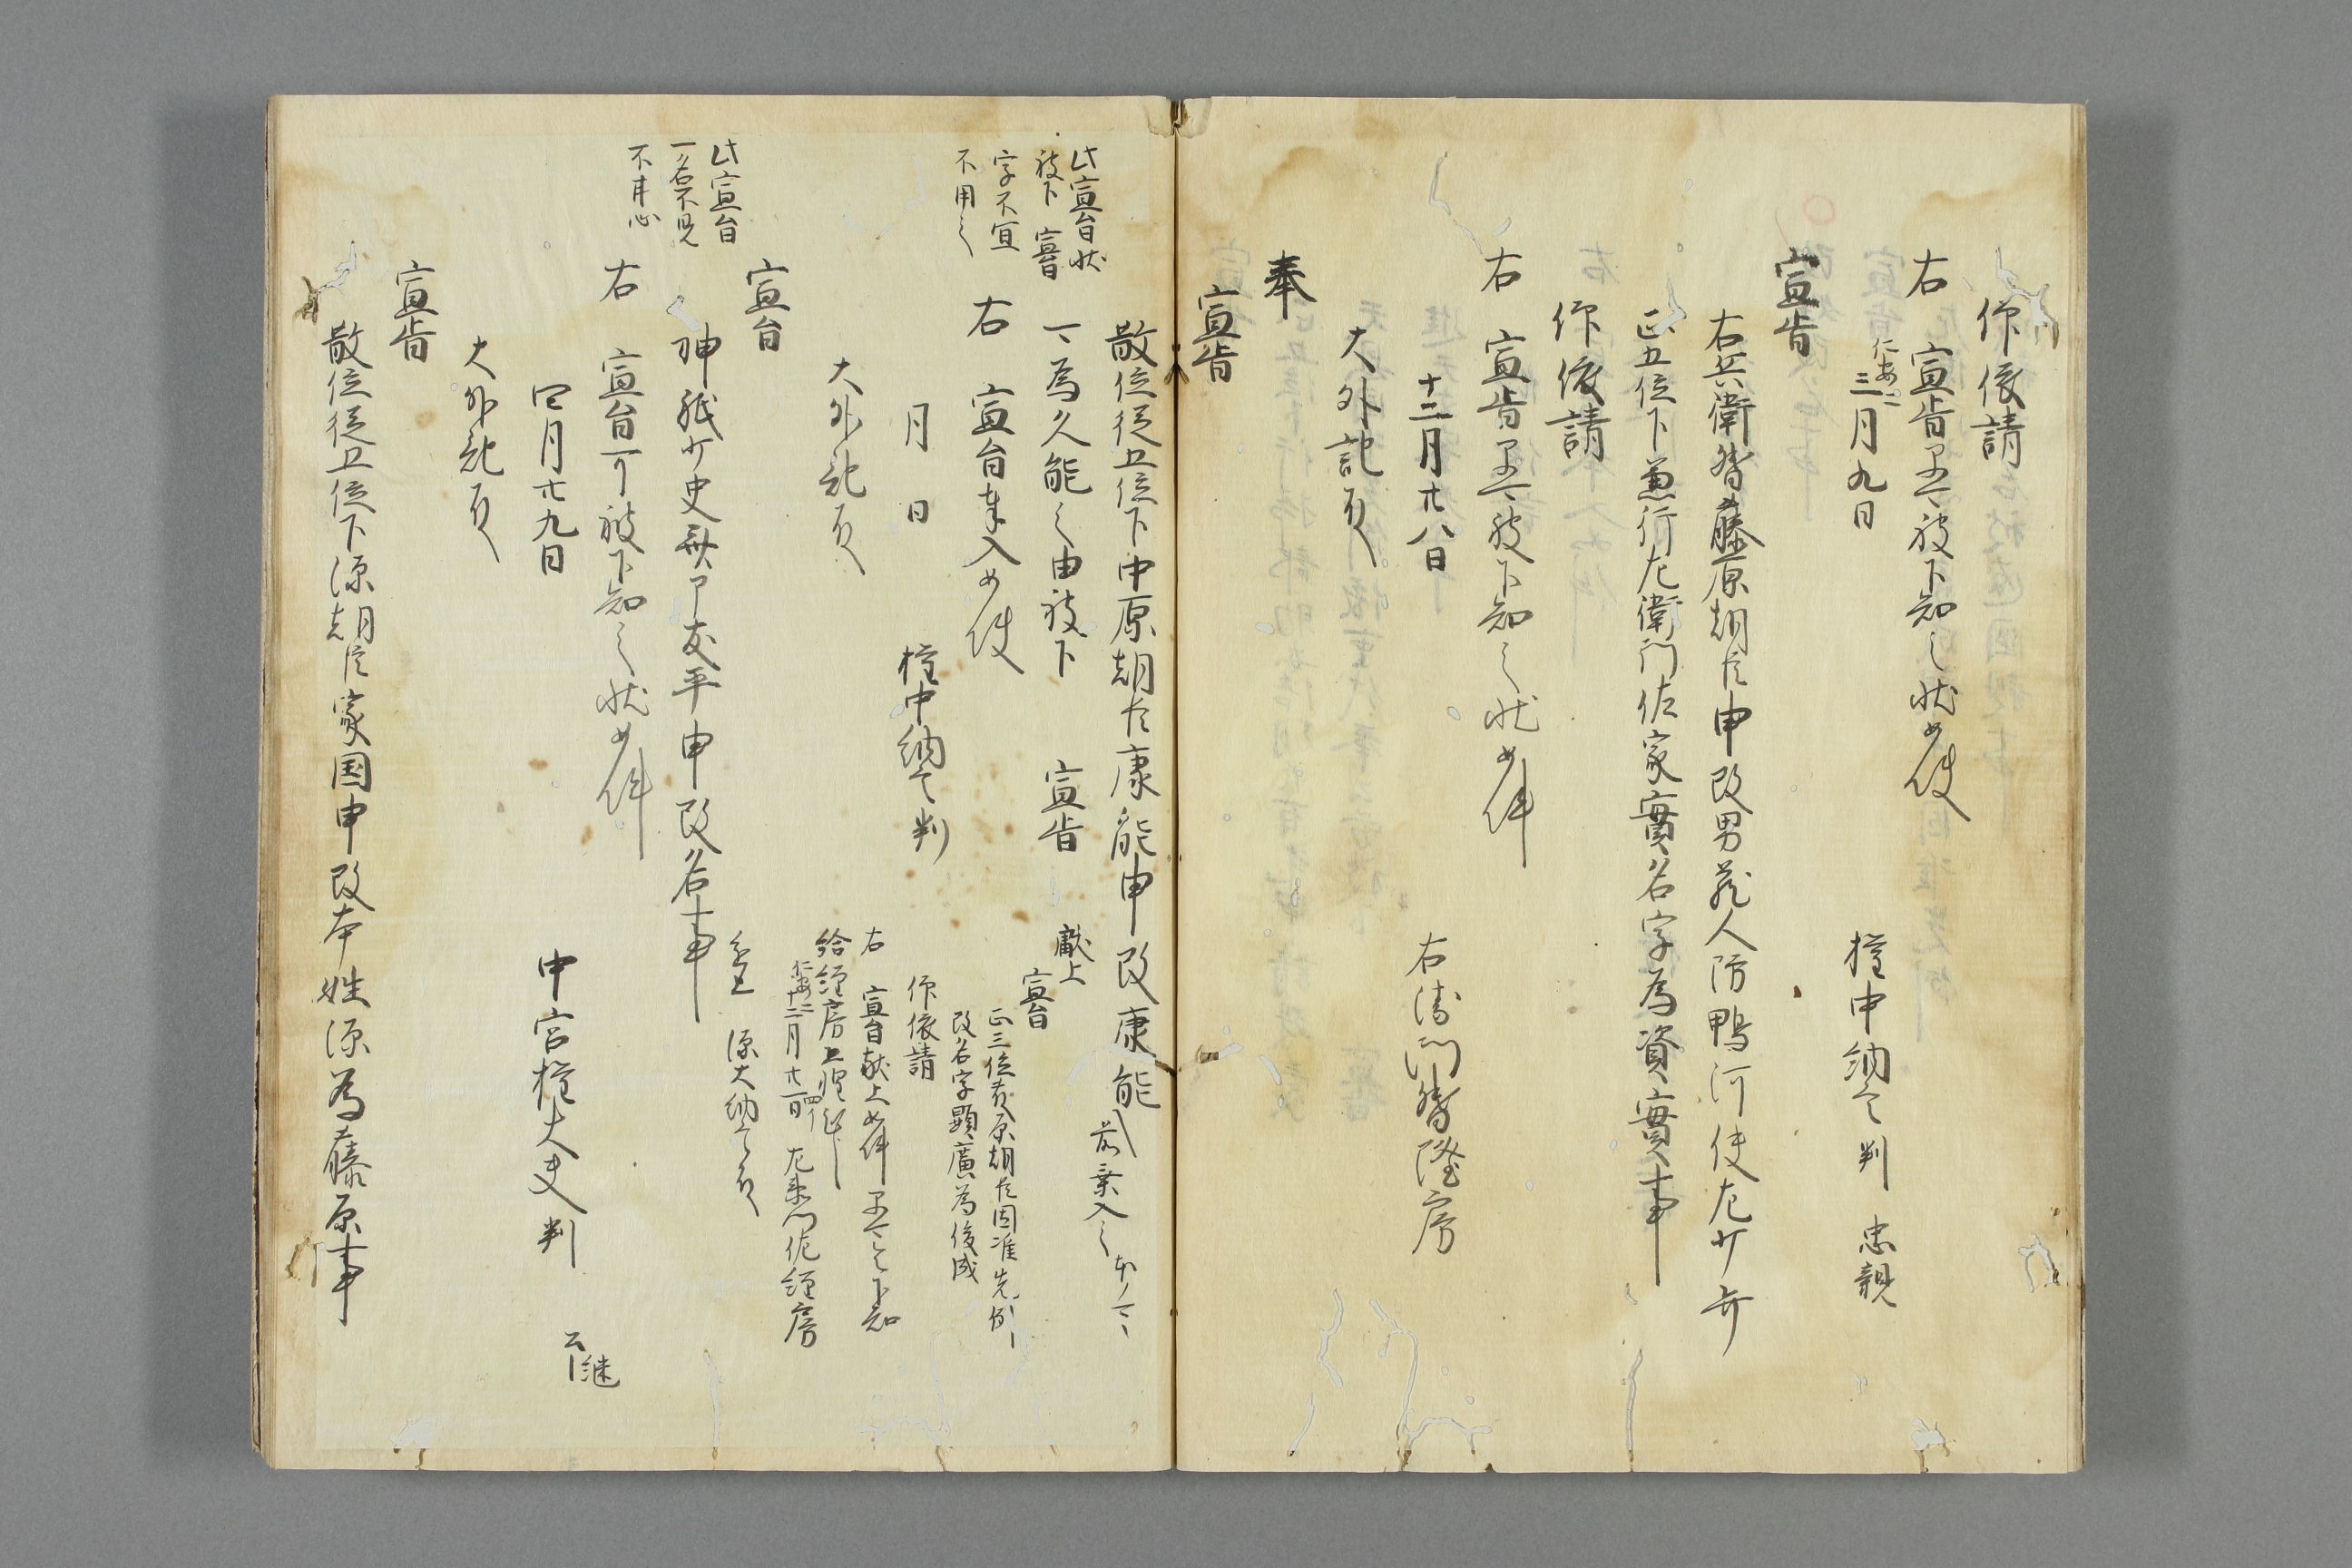 仰依請
右宣旨早可被下知之状如件
仁安二
三月九日 権中納言判 忠親
宣旨
右兵衛督藤原朝臣申改男蔵人防鴨河使左少弁
正五位下兼行左衛門佐家實名字為資實事
仰依請
右宣旨早可被下知之状如件
十二月廿八日 右衛門督隆房
大外記殿
奉
宣旨
散位従五位下中原朝臣康能申改康能
可為久能之由被下 宣旨
右 宣旨奉入如件
月 日 権中納言判
大外記殿
此宣旨状
被下 宣旨
字不宜
不用之
献上
宣旨
正三位藤原朝臣因准先例
改名字顕廣為俊成
仰依請
右 宣旨献上如件早可令下知
給経房上啓
仁安二
十二月廿四日 左衛門佐経房
進上 源大納言殿
宣旨
神祇少史齋部友平申改名事
右 宣旨可被下知之状如件
四月廿九日 中宮権大夫判
大外記殿
此宣旨
名不見
宣旨
散位従五位下源朝臣家国申改本姓源為藤原事